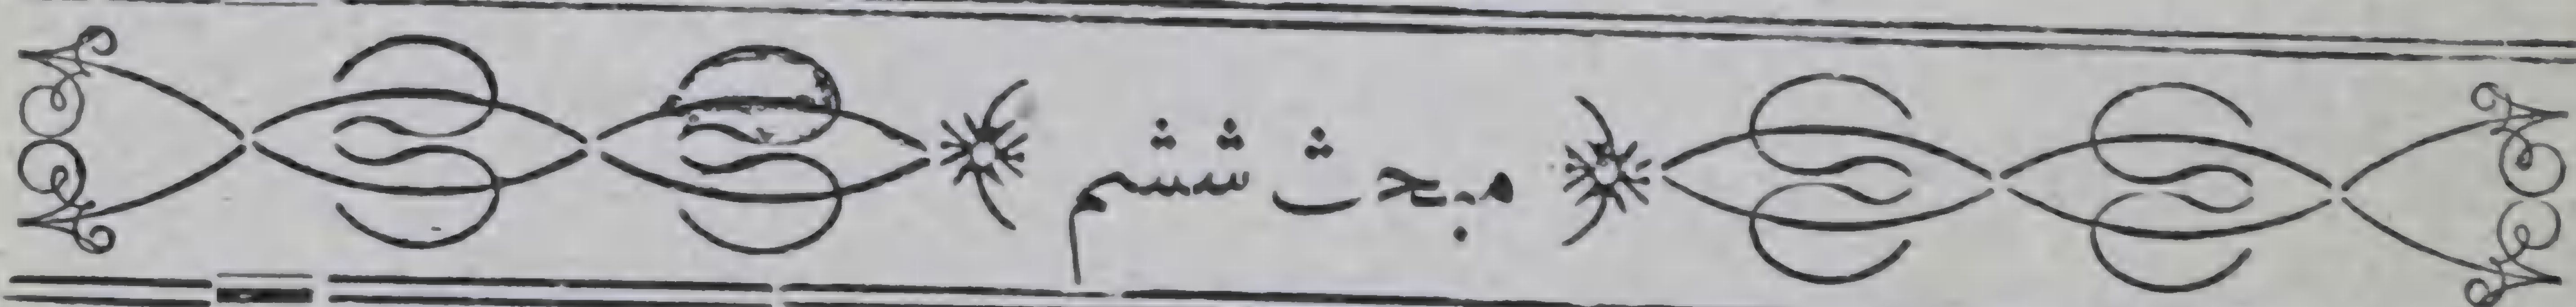 مبحث ششم